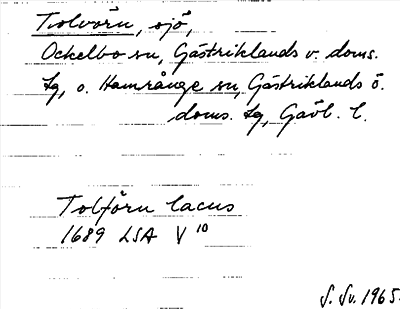 Tolvörn, sjö,
Ockelbo sn, Gästriklands v. doms.
tg, o. Hamrånge sn, Gästriklands ö.
doms. tg, Gävl. l.
Tolförn lacus
1689 LSA V 10
S. Sv. 1965.